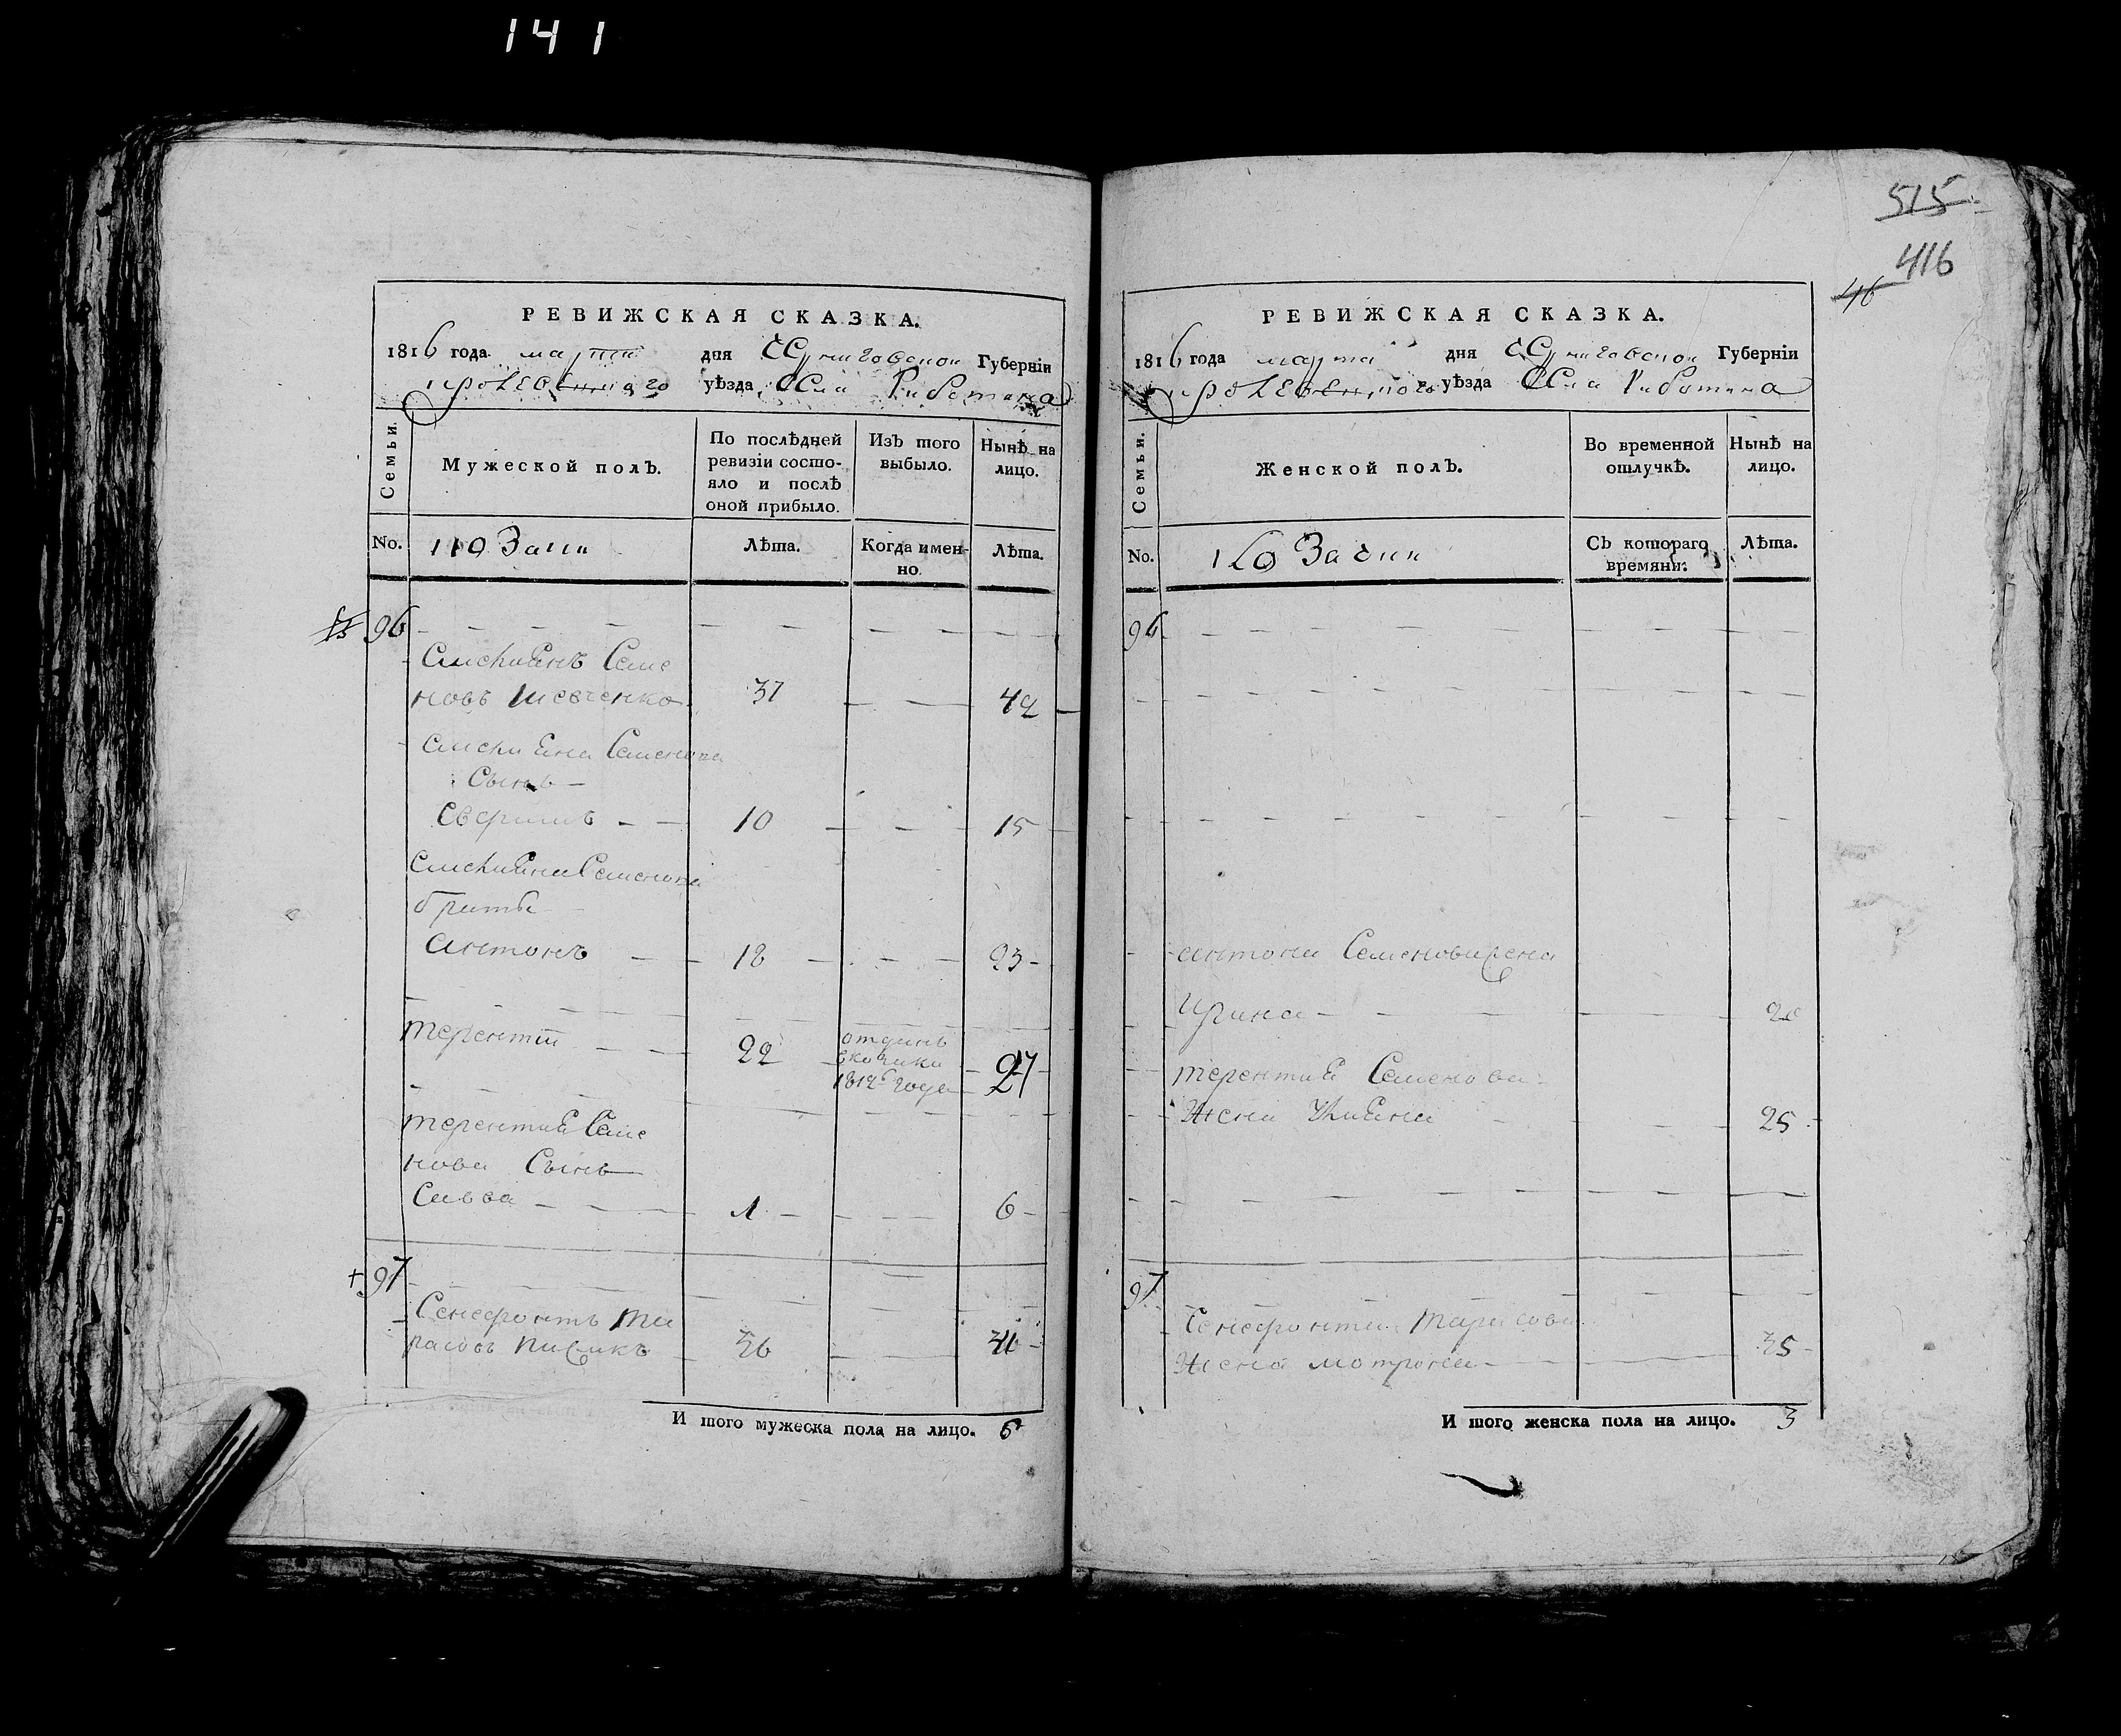 141
515.
416
46
РЕВИЖСКАЯ СКАЗКА.
1816 года марта дня Черниговской Губерніи
кролевецкого уѣзда Села Риботина
Семьи.
Мужеской полъ.
По послѣдней ревизіи состояло и послѣ оной прибыло.
Изъ того выбыло.
Нынѣ на лицо.
No.
Лѣта.
Когда именно.
Лѣта.
96
Семе
новъ Шевченко
37
42
Семенова
Сынъ
10
15
Семенова
братъ
Антонъ
18
23
Терентій
22
1812 года
27
Терентия Семе
нова Сынъ
Савва
1
6
97
Ксенофонтъ Та
расовъ
36
41
И того мужеска пола на лицо. 6
РЕВИЖСКАЯ СКАЗКА.
1816 года марта дня Черниговской Губерніи
кролевецкого уѣзда Села Риботина
Семьи.
Женской полъ.
Во временной отлучкѣ.
Нынѣ на лицо.
No.
Съ котораго времяни.
Лѣта.
96
Антона Семенова жена
Ирина
20
Терентия Семенова
Жена Улияна
25
97
Ксенофонта Тарасова
Жена Мотрона
35
И того женска пола на лицо. 3